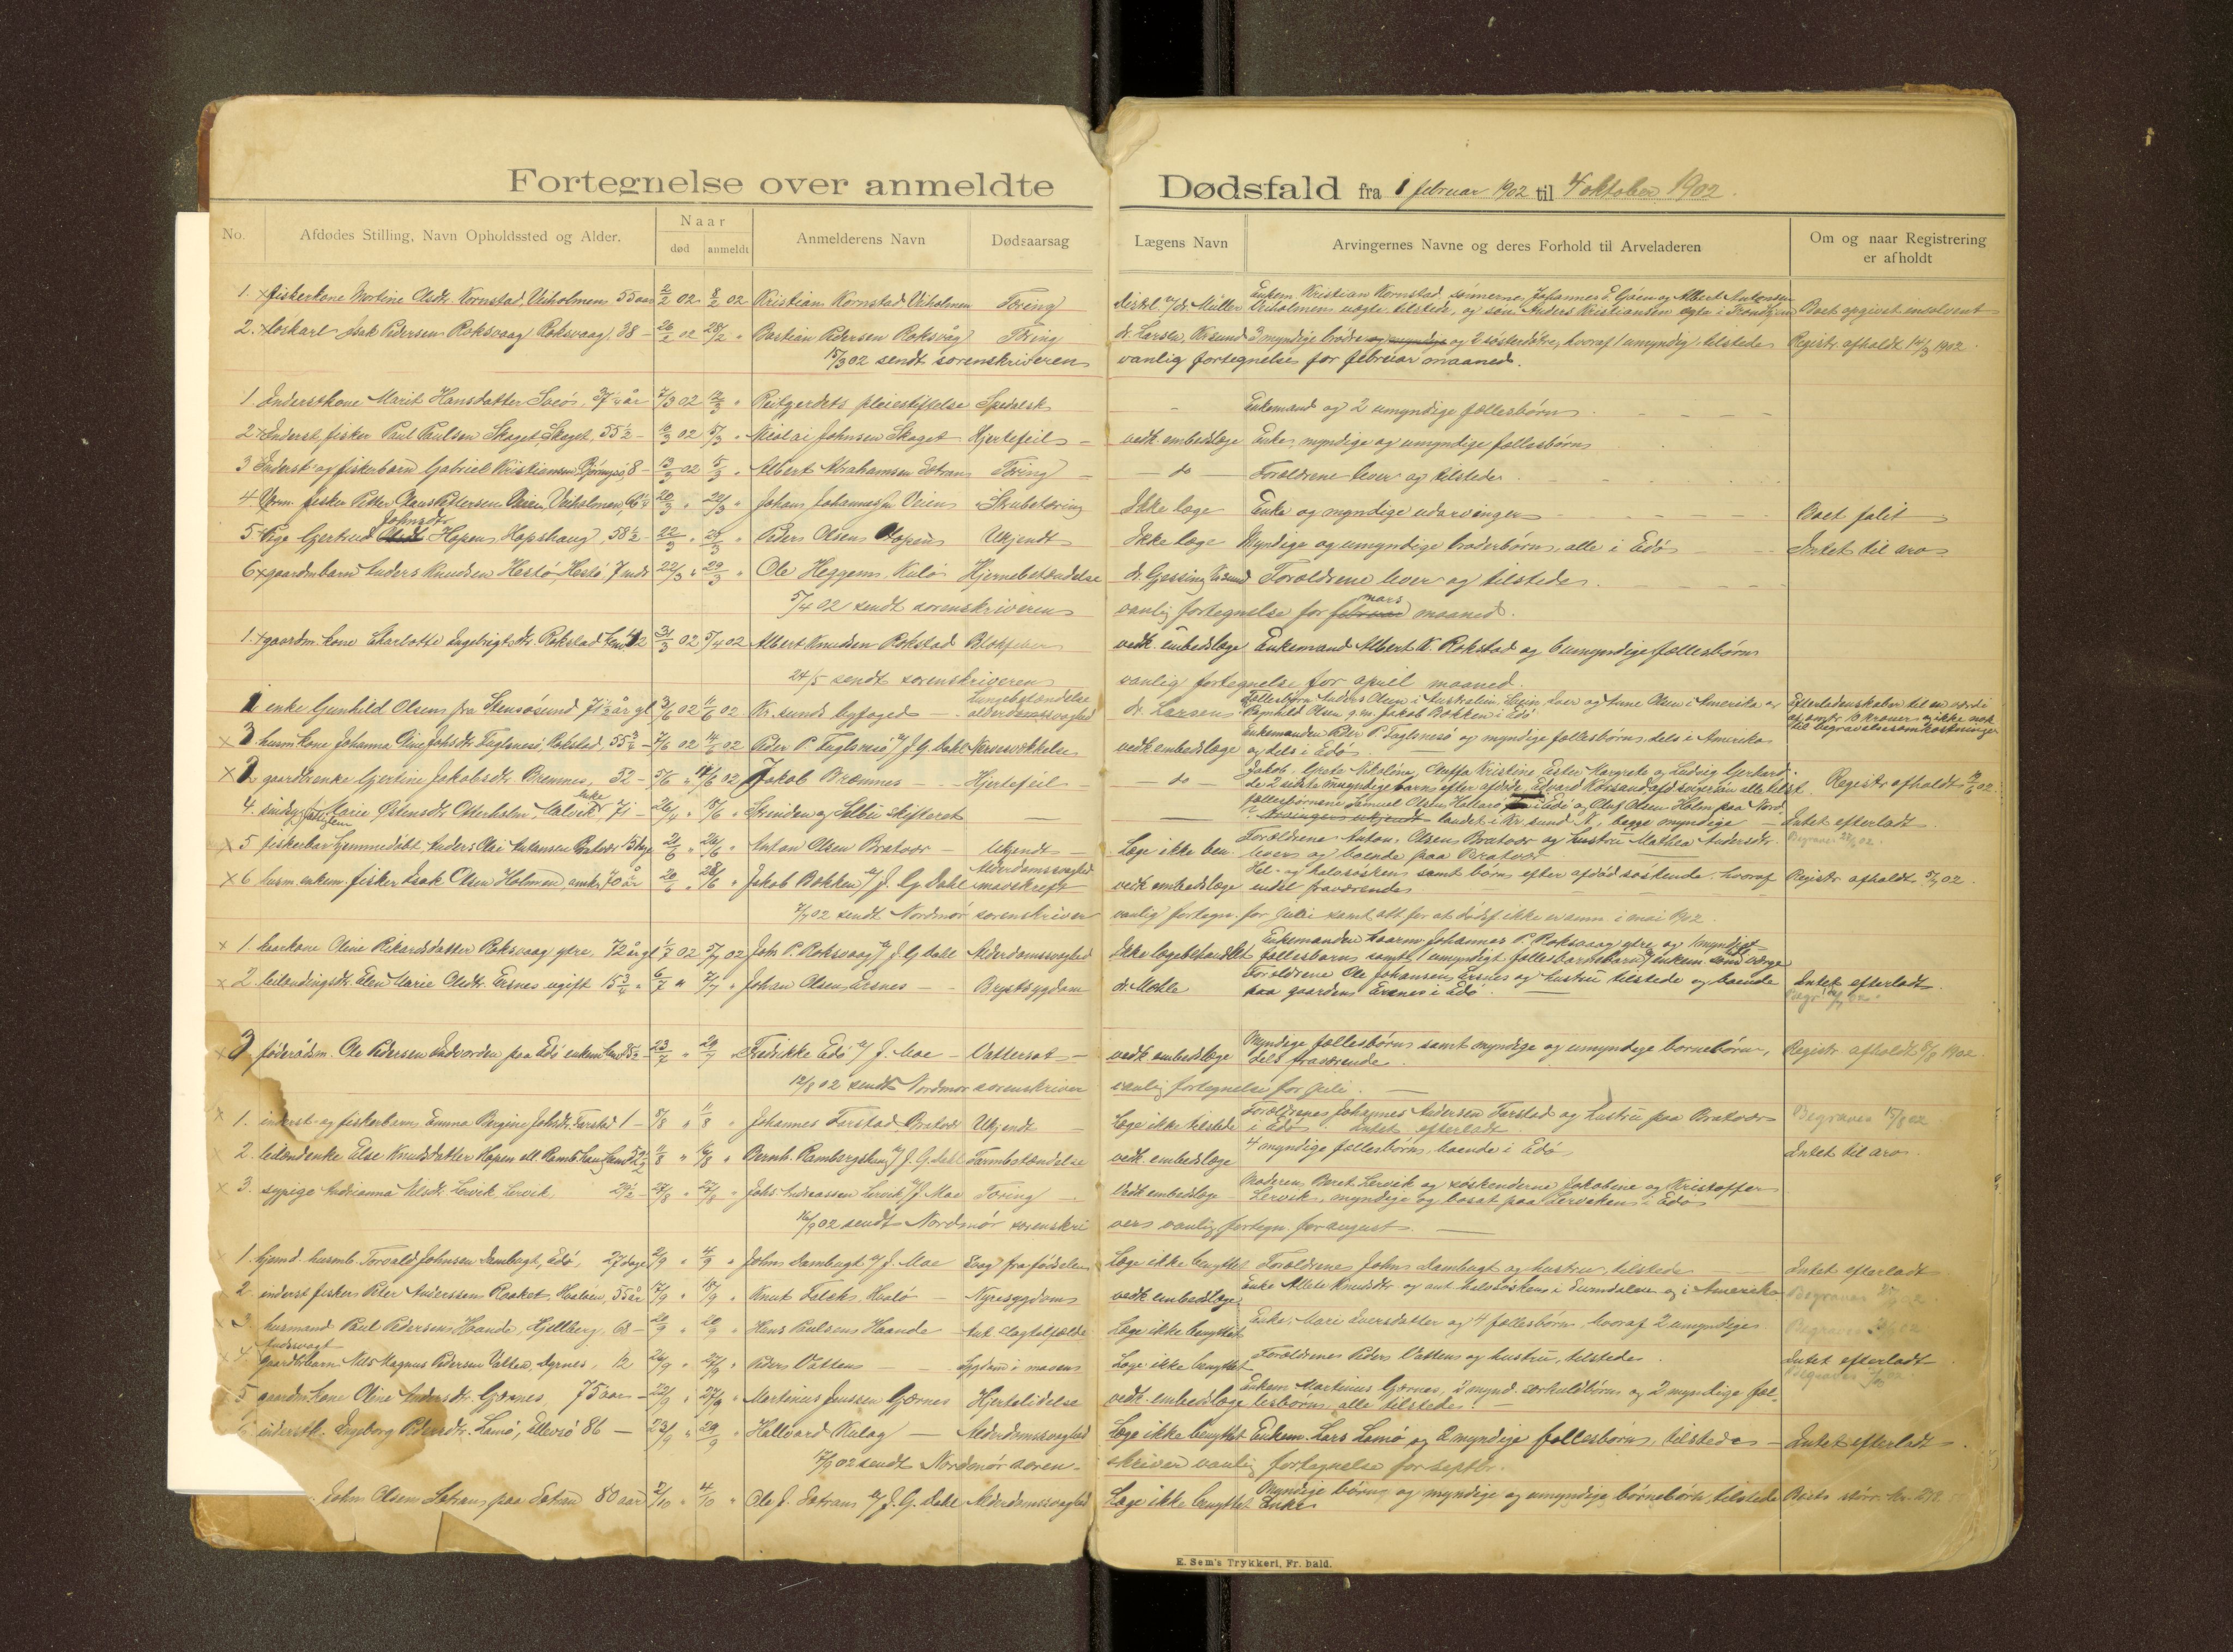 Fortegnelse over anmeldte Dødsfald fra 1 februar 1902 til 4 oktober 1902.
No. Afdødes Stilling, Navn Opholdssted og Alder. Naar død anmeldt Anmelderens Navn Dødsaarsag Lægens Navn Arvingernes Navne og deres Forhold til Arveladeren Om og naar Registrering er afholdt
1. x fiskerkone Martine Olsdtr. Kornstad, Veiholmen 55 aar 2/2 02 8/2 02 Kristian Kornstad Veiholmen Tæring distrl. v/ dr Müller Enkem. Kristian Kornstad, sønnerne, Johannes Antonsen
Veiholmen uægte tilstede, og søn Anders Kristiansen ægte i Trondhjem Boet opgivet insolvent
2. x løskarl Isak Pedersen Roksvaag Roksvaag, 38 – 26/2 02 28/2 " Bastian Pedersen Roksvåg Tæring dr. Larsen, Krsund 3 myndige brødre og 2 søsterdøtre, hvoraf 1 umyndig, tilstede Registr. afholdt 14/3 1902.
15/3 02 sendt sorenskriveren vanlig fortegnelse for februar maaned.
1. Inderstkone Marit Hansdatter 37 1/4 år 7/3 02 12/3 " Reitgjerdets pleiestiftelse Spedalsk – Enkemand og 2 umyndige fællesbørn
2 x Inderst, fisker Paul Paulsen Skaget Skaget, 55 1/2 – 02 5/3 " Nicolai Johnsen Skaget Hjertefeil – vedk. embedslæge Enke, myndige og umyndige fællesbørn
3 Inderst og fiskerbarn Gabriel Kristiansen 8 – 13/3 02 " Albert Abrahamsen Tæring – – do Forældrene lever og tilstede.
4. Petter Claus Pettersen Veien, Veiholmen, 66 1/4 20/3 " 22/3 " Johan Johannessen Veien Strubetæring Ikke læge Enke og myndige udarvinger Boet falit
5 Pige Gjertrud Johnsdtr Hopen, Hopshaug, 58 1/2 – 22/3 " 24/3 " Peder Olsen Hopen Ukjendt Ikke læge Myndige og umyndige broderbørn, alle i Edø Intet til arv
6 x gaardmbarn Anders Knudsen Hestø Hestø 7 mdr 22/3 " 29/3 " Ole Heggem, Kulø Hjernebetændelse dr. Gjessing Krsund Forældrene lever og tilstede.
5/4 02 sendt sorenskriveren vanlig fortegnelse for mars maaned.
1. x gaardm. kone Charlotte Ingebrigtsdtr. Rokstad 42 31/3 02 5/4 02 Albert Knudsen Rokstad vedk. embedslæge Enkemand Albert K. Rokstad og 6 umyndige fællesbørn
24/5 sendt sorenskriveren vanlig fortegnelse for april maaned.
1 enke Gunhild Olsen fra Stensøsund 71 1/2 år gl 3/6 02 11/6 02 Kr.sunds byfoged – Lungebetændelse alderdomssvaghed dr. Larsen Fællesbørn Anders Olsen i Australien, og Anne Olsen i Amerika og
Ragnhild Olsen g.m. Jakob Bokken i Edø Efterladenskaber til en værdi af omtr. 10 kroner og ikke nok til begravelsesomkostninger
3 husm kone Johanna Oline Johsdtr. Fuglsnesø, Rokstad, 55 3/4 – 7/6 02 14/6 02 Peder P. Fuglsnesø v/ J. G. Dahl Nervesvækkelse vedk. embedslæge Enkemanden Peder P. Fuglsnesø og myndige fællesbørn, dels i Amerika
og dels i Edø.
x 2 gaardbr.enke Gjertine Jakobsdtr. Bremnes, 52 – 5/6 " 14/6 02 Jakob Bræmnes – Hjertefeil – do – Jakob, Grete Nikoline, Kristine Ester Margrete og Ludvig Gerhard. Registr afholdt 02.
4. Marie Østensdtr. Otterholm, Malvik enke 71 – 26/4 " 18/6 " Strinden og Selbu skifteret – fællesbørnene Samuel Olsen Hallarø i Edø og Oluf Olsen Holm paa Nord-
landet i Kr.sund N., begge myndige – Intet efterladt.
x 5 fiskerbarn hjemmedøbt, Anders Olai Antonsen Bratvær 15 dage 21/6 " 26/6 " Anton Olsen Bratvær – Ukjendt – Læge ikke ben. Forældrene Anton Olsen Bratvær og hustru Mathea Andersdtr.
lever og boende paa Bratvær Begravet 02.
x 6 husm. enkem. fisker Isak Olsen Holmen omkr. 70 år 20/6 " 28/6 " Jakob Bokken v/ J. G. Dahl Alderdomssvaghed mavekræft vedk. embedslæge Hel- og halvsøsken samt børn efter afdød søskende, hvoraf
endel fraværende Registr. afholdt 5/7 02.
7/7 02 sendt Nordmør sorenskriver vanlig fortegn. for juli samt att. for at dødsf. ikke er anm. i mai 1902.
x 1. kaarkone Oline Rikardsdatter Roksvaag ytre, 72 år gl 1/7 02 5/7 02 Joh. P. Roksvaag v/ J. G. Dahl Alderdomssvaghed Ikke lægebehandlet Enkemanden kaarm. Johannes P. Roksvaag ytre, og 1 myndigt
fællesbarn samt 1 umyndigt fællesbarnebarn enkem. som værge
x 2. leilændingsdtr. Elen Marie Olsdtr. Ersnes ugift 15 3/4 " 6/7 " 7/7 " Johan Olsen Ersnes – Brystsygdom dr. Mohle Forældrene Ole Johansen Ersnes og hustru tilstede og boende
paa gaarden Ersnes i Edø. Intet efterladt.
x 3 føderådsm. Ole Pedersen Indvorden paa Edø enkem 23/7 " 29/7 " Fredrikke Edø v/ J. Moe – Vattersot – vedk embedslæge Myndige fællesbørn samt myndige og umyndige børnebørn,
dels fraværende. Registr. afholdt 8/8 1902.
12/8 02 sendt Nordmør sorenskriver vanlig fortegnelse for juli. –
x 1. inderst- og fiskerbarn Emma Bergine Johsdtr. Farstad 1 – 8/8 " 11/8 " Johannes Farstad, Bratvær Ukjendt – Læge ikke tilstede Forældrene Johannes Andersen Farstad og hustru paa Bratvær
i Edø. Intet efterladt. Begraves 15/8 02
x 2. leilænd enke Else Knudsdatter Hopen ell. Ramb.haug " 16/8 " Bernh. Rambergshaug v/ J. G. Dahl Tarmbetændelse vedk. embedslæge 4 myndige fællesbørn, boende i Edø Intet til arv.
x 3. sypige Andrianna Nilsdtr. Lervik, Lervik, 29 1/2 – 24/8 " 27/8 " Johs Andreassen Lervik v/ J. Moe Tæring – Vedk embedslæge Moderen Beret Lervik og søskenderne Jakobene og Kristoffer
Lervik, myndige og bosat paa Lerviken i Edø
16/9 02 sendt Nordmør sorenskrivers vanlig fortegn. for august. –
1. hjemd. husmb. Torvald Johnsen Dambugt, Edø, 27 dage 2/9 " 4/9 " John Dambugt v/ J. Moe Svag fra fødselen Læge ikke benyttet Forældrene John Dambugt og hustru, tilstede Intet efterladt
2. inderst fisker Peter Andersen Raaket, 55 år 17/9 " 18/9 " Knut Falch, Hvalø – Nyresygdom vedk. embedslæge Enke Allete Knudsdtr. og ant. halvsøsken i Surndalen og i Amerika Begraves 02
3. husmand Paul Pedersen Haande, Hjellberg, 68 – 20/9 " 20/9 " Hans Paulsen Haande Ant. slagtilfælde Læge ikke benyttet Enke, Mari Iversdatter og 4 fællesbørn, hvoraf 2 umyndige Begraves 02
x 4. Aandssvagt gaardbr.barn Nils Magnus Pedersen Vatten, Dyrnes, 12 26/9 " 27/9 " Peder Vatten – Sygdom i maven Læge ikke benyttet Forældrene Peder Vatten og hustru, tilstede. Intet efterladt
5 gaardm. kone Oline Andersdtr. Gjærnes, 75 aar – 22/9 " 27/9 " Martinus Jenssen Gjærnes Hjertelidelse vedk. embedslæge Enkem. Martinus Gjærnes, 2 mynd. særkuldbørn og 2 myndige fæl-
lesbørn, alle tilstede. –
6 inderstk. Ingeborg Pedersdtr. Lamø, Ellevsø 86 – 23/9 " 29/9 " Hallvard Kulag – Alderdomssvaghed Læge ikke benyttet Enkem. Lars Lamø og 2 myndige fællesbørn, tilstede – Intet efterladt
02 sendt Nordmør sorenskriver vanlig fortegnelse for septbr.
John Olsen Sætran paa Sætran 80 aar 2/10 " 4/10 " Ole J. Sætran v/ J. G. Dahl Alderdomssvaghed Læge ikke benyttet Myndige børn og myndige og umyndige børnebørn, tilstede
Enke
E. Sem's Trykkeri, Fr.hald.